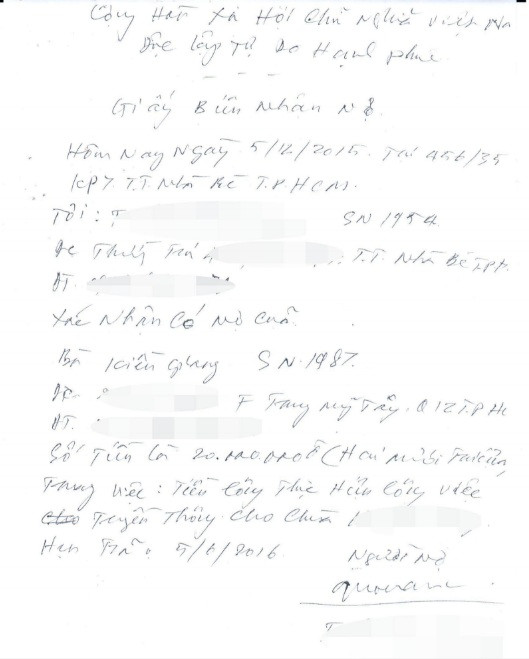 Cộng Hoà Xã Hội Chủ Nghĩa Việt Na
Độc lập Tự Do Hạnh phúc
- - -
Giấy Biên Nhận Nợ.
Hôm Nay Ngày 5/12/2015. Tại 456/35
KP7. T.T. Nhà Bè T.P HCM.
Tôi : T SN 1954
Đc Thường Trú T.T. Nhà Bè T.P H
ĐT.
Xác Nhận Có Nợ Của
Bà Kiên Giang SN. 1987.
Đc :
F Trung Mỹ Tây. Q 12 T.P Hc
ĐT. :
Số Tiền Là 20.000.000đ (Hai Mươi Triệu)
Trong Việc : Tiền Công Thực Hiện Công Việc
Truyền Thông Cho Chùa
Hạn Trả : 5/6/2016. Người Nợ
T